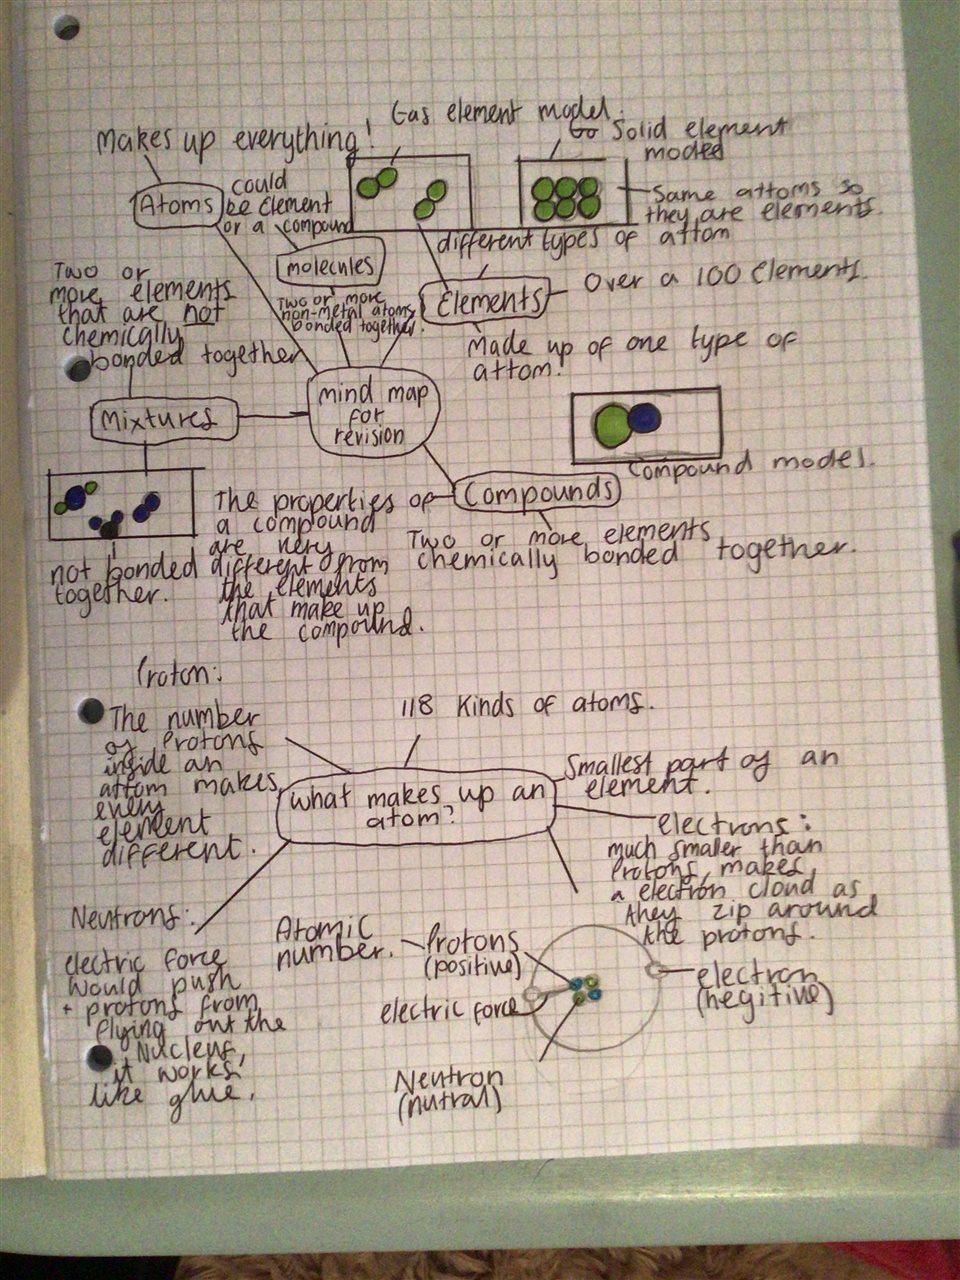 Gas element model.
Makes up everything!
Go Solid element
model
Atoms
could
be Element
or a compound
Same attoms so
they are elements.
different types of attom
molecules
Two or more
non-metal atoms
bonded together.
Elements
Over a 100 Elements.
Two or
more elements
that are not
chemically
bonded together
Made up of one type of
attom!
mind map
for
revision
Mixtures
Compound model.
Compounds
The properties of
a compound
are very
different from
the elements
that make up
the compound.
Two or more elements
chemically bonded together.
not bonded
together.
Proton:
The number
of Protons
inside an
attom makes
every
element
different.
118 Kinds of atoms.
What makes up an
atom?
Smallest part of an
element.
electrons:
much smaller than
Protons, makes
a electron cloud as
they zip around
the protons.
Neutrons:
electric force
would push
+ protons from
flying out the
Nucleus,
it works
like glue.
Atomic
number.
Protons
(positive)
electric force
electron
(negitive)
Neutron
(nutral)